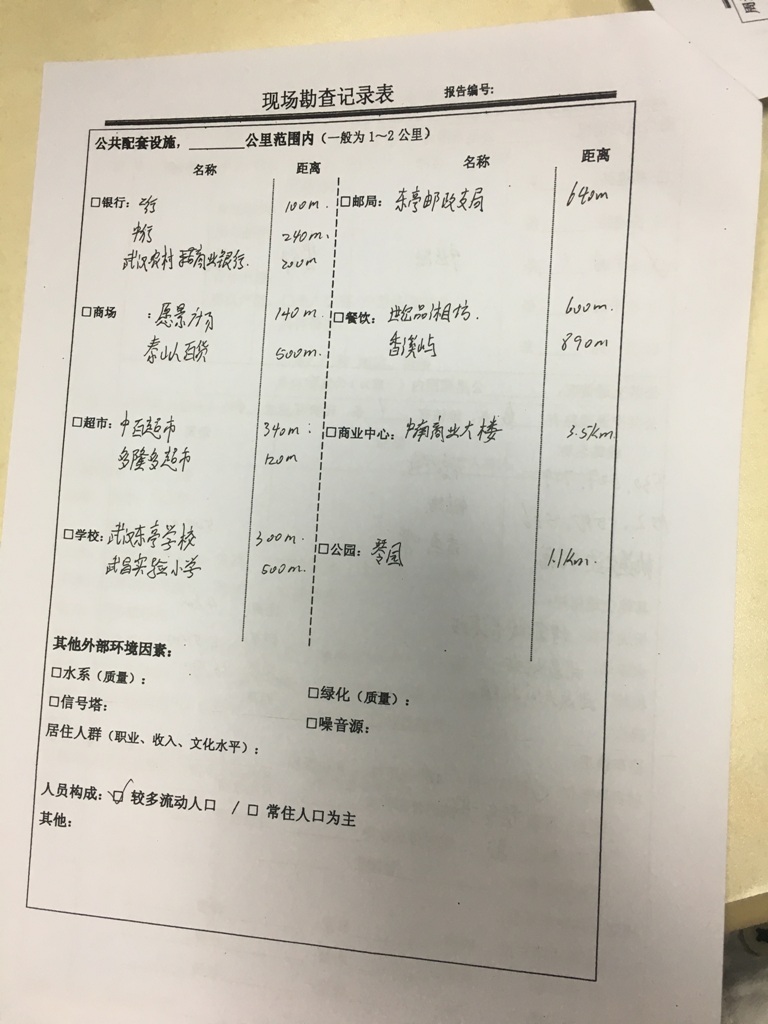 现场勘查记录表 报告编号:
公共配套设施，______公里范围内（一般为1～2公里）
名称 距离 名称 距离
□银行: 工行 100m. □邮局: 东亭邮政支局 640m
中行 240m.
武汉农村商业银行. 200m
□商场 : 愿景广场 140m. □餐饮: 湘坊. 600m.
泰山人百货 500m. 香溪屿 890m
□超市: 中百超市 340m □商业中心: 中南商业大楼 3.5km
多隆多超市 120m
□学校: 武汉东亭学校 300m. □公园: 1.1km.
武昌实验小学 500m.
其他外部环境因素:
□水系（质量）: □绿化（质量）:
□信号塔: □噪音源:
居住人群（职业、收入、文化水平）:
人员构成: ☑ 较多流动人口 / □ 常住人口为主
其他: